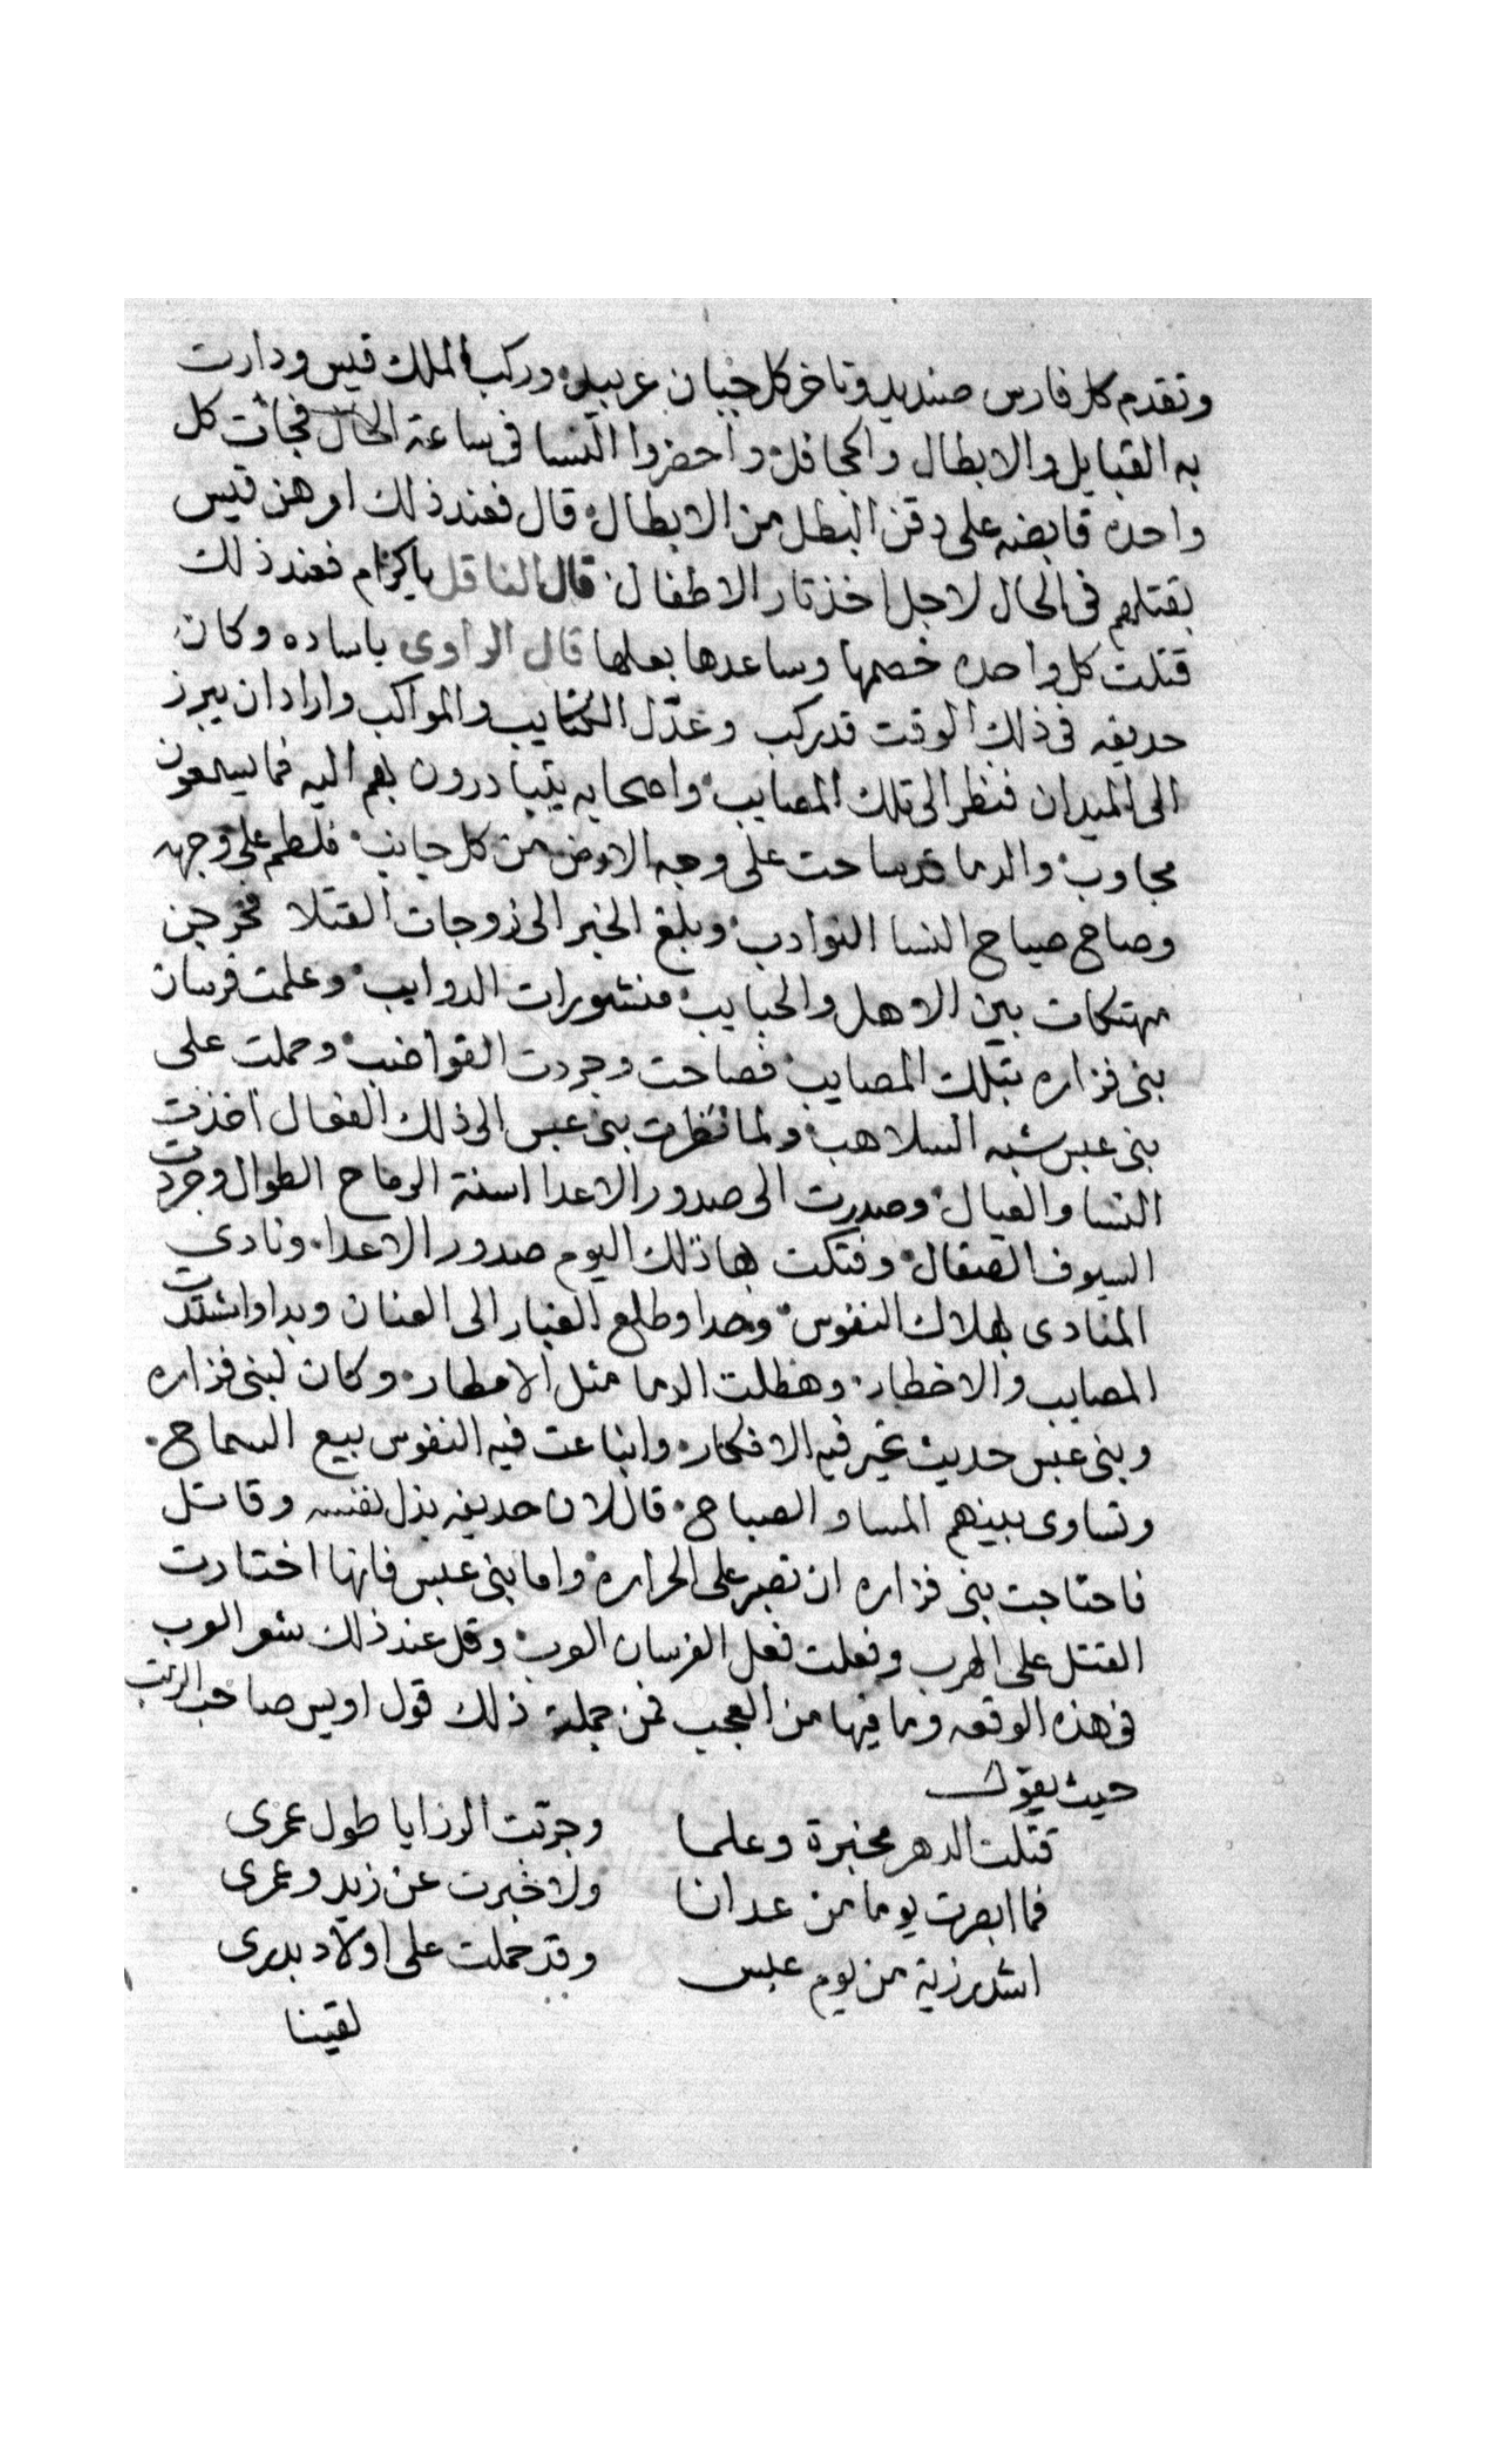 وتقدم كل فارس صنديد وتاخر كل جبان عربيد وركب الملك قيس ودارت
به القبايل والابطال والجحافل واحضروا النسا في ساعة الحال فجات كل
واحده قابضه على دقن البطل من الابطال قال فعند ذلك امرهن قيس
بقتلهم في الحال لاجل اخذ تار الاطفال قال الناقل ياكرام فعند ذلك
قتلت كل واحده خصمها وساعدها بعلها قال الراوى ياساده وكان
حديفه في ذلك الوقت قد ركب وعدّل الكتايب والمواكب واراد ان يبرز
الى الميدان فنظر الى تلك المصايب واصحابه يتبادرون بهم اليه فما يسمعون
مجاوب والدما قد ساحت على وجه الارض من كل جانب فلطم على وجهه
وصاح صياح النسا النوادب وبلغ الخبر الى زوجات القتلا فخرجن
مهتكات بين الاهل والحبايب منشورات الدوايب وعلمت فرسان
بنى فزاره بتلك المصايب فصاحت وجردت القواضب وحملت على
بنى عبس شبه السلاهب ولما نظرت بنى عبس الى ذلك الفعال اخذت
النسا والعيال وصدرت الى صدور الاعدا اسنة الرماح الطوال وجردت
السيوف الصقال وفتكت هاذلك اليوم صدور الاعدا ونادى
المنادى بهلاك النفوس وحدا وطلع الغبار الى العنان وبدا واشتدت
المصايب والاخطار وهطلت الدما مثل الامطار وكان لبنى فزاره
وبنى عبس حديث تحير فيه الافكار وابتاعت فيه النفوس بيع السماح
وتساوى بينهم المسا والصباح قال لان حديفه بذل نفسه وقاتل
فاحتاجت بنى فزاره ان تصبر على الحراره واما بنى عبس فانها اختارت
القتل على الهرب وفعلت فعل الفرسان العرب وقل عند ذلك شعر العرب
في هذه الوقعه وما فيها من العجب فمن جملة ذلك قول اويس صاحب الرتب
حيث يقول
قتلت الدهر مخبرة وعلما وجرّبت الرزايا طول عمرى
فما ابصرت يوما من عدانا ولا خبرت عن زيد وعمرى
اشد رزية من يوم عبس وقد حملت على اولاد بدرى
لقينا